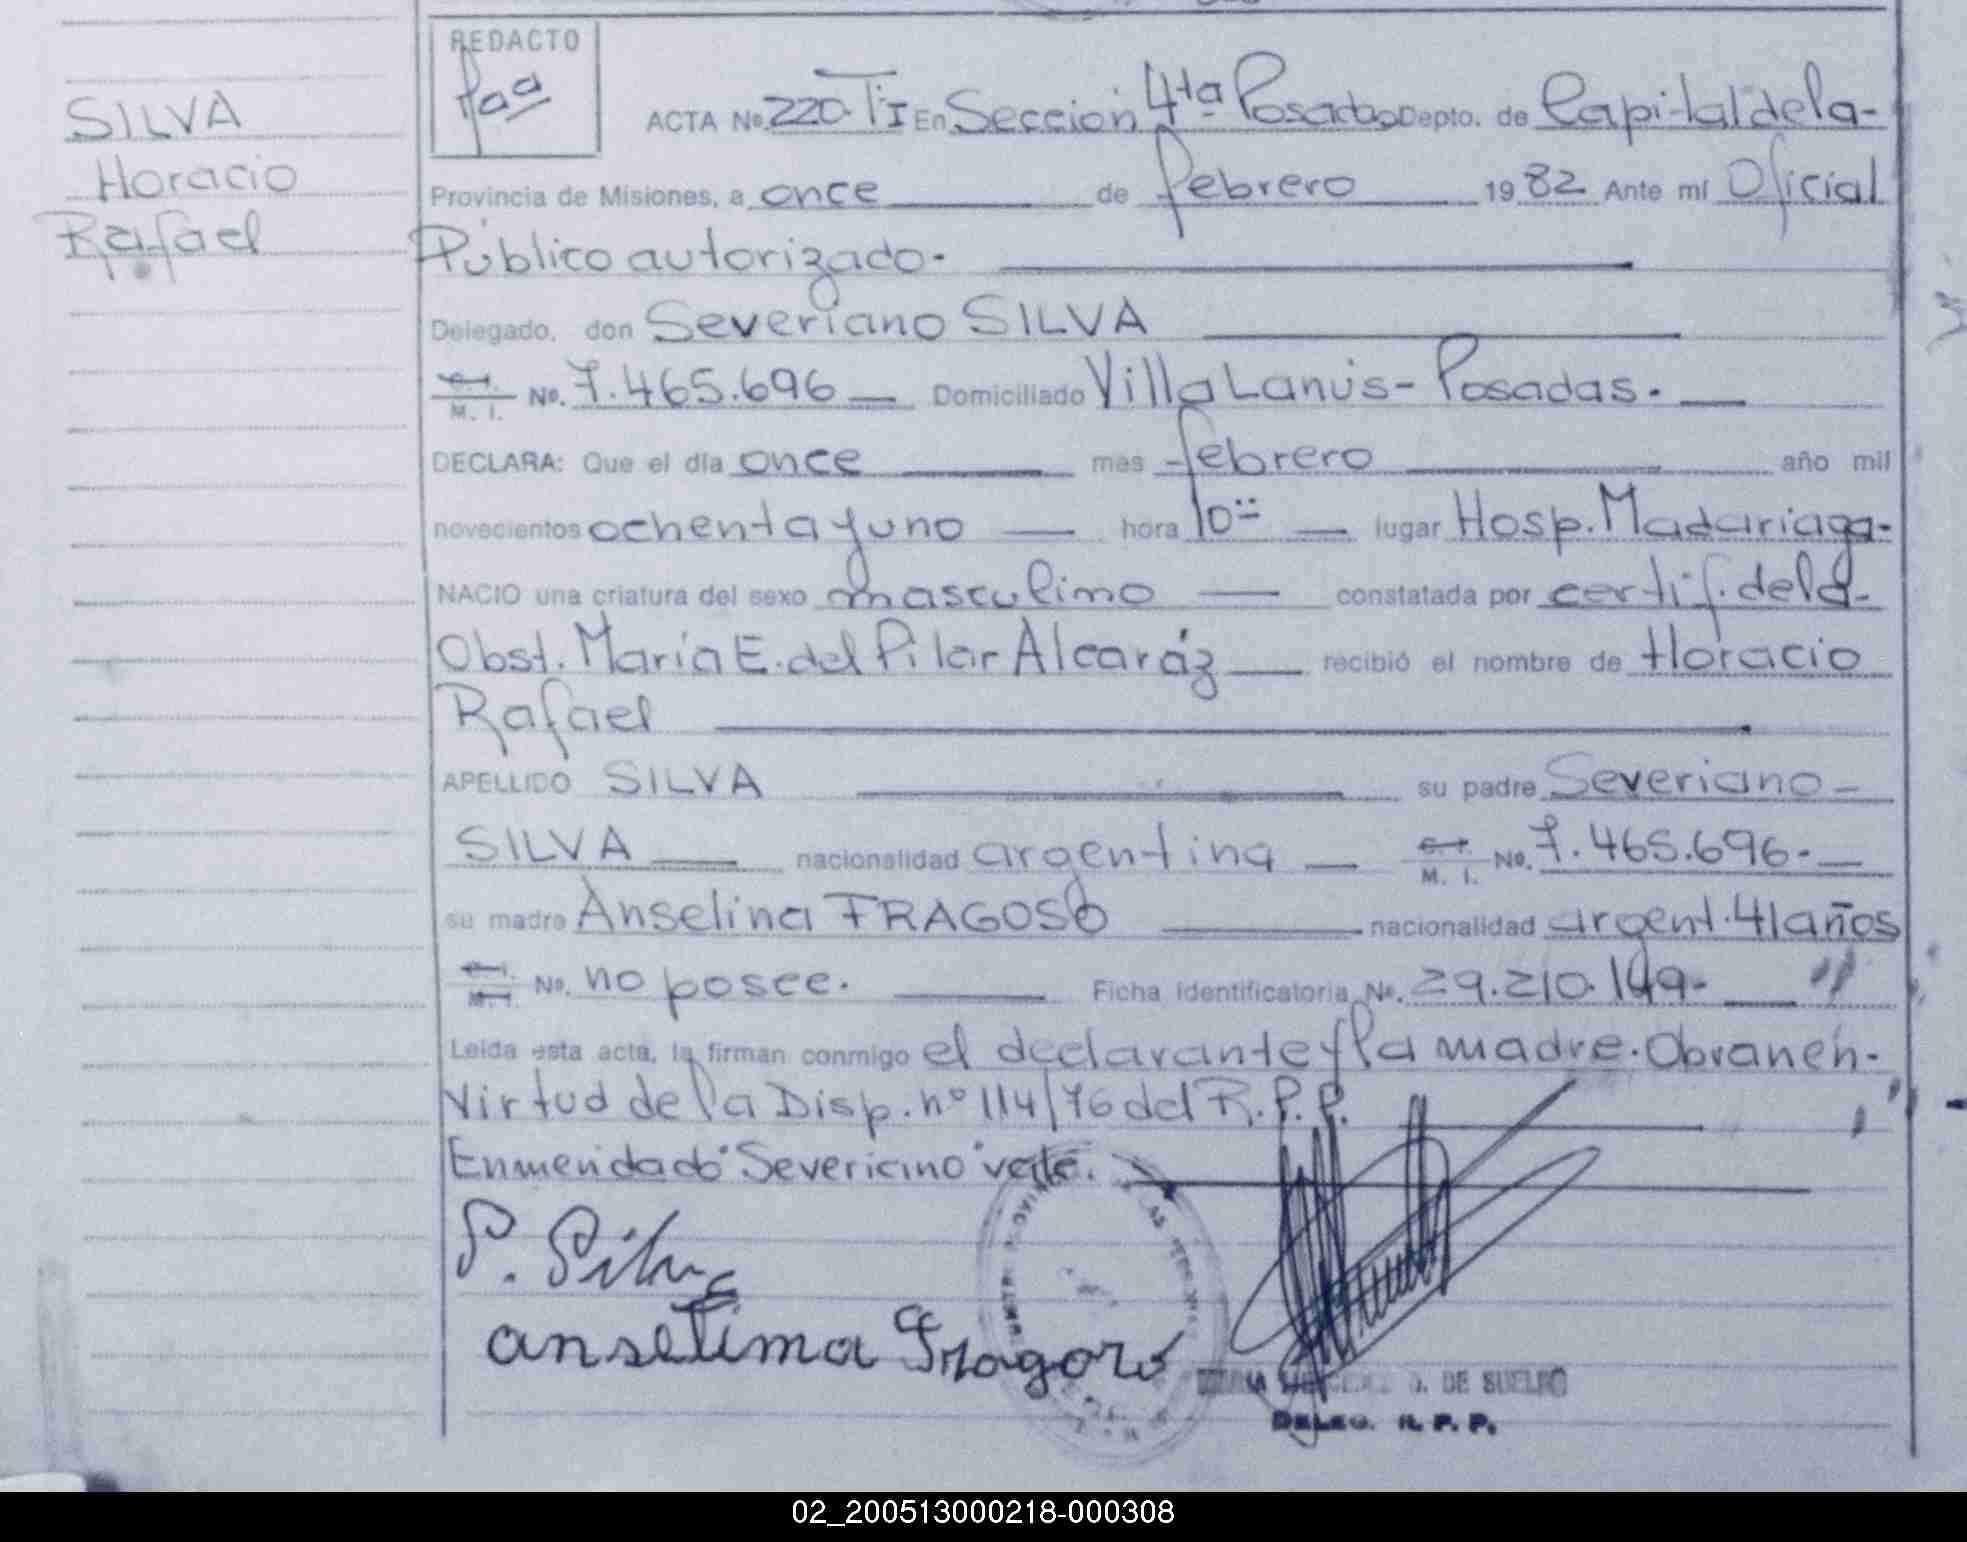 SILVA
Horacio
Rafael
REDACTO
ACTA No. 220. TºI En Sección 4ta Posadas Depto. de Capital de la-
Provincia de Misiones, a once de febrero 1982 Ante mí Oficial
Público autorizado.
Delegado, don Severiano SILVA
M. I. No. 7.465.696 Domiciliado Villa Lanús - Posadas.
DECLARA: Que el día once mes febrero año mil
novecientos ochenta y uno hora 10 lugar Hosp. Madariaga-
NACIO una criatura del sexo masculino constatada por certif. de la-
Obst. María E. del Pilar Alcaráz recibió el nombre de Horacio
Rafael
APELLIDO SILVA su padre Severiano -
SILVA nacionalidad argentina M. I. No. 7.465.696.-
su madre Anselina FRAGOSO nacionalidad argent. 41 años
No. no posee. Ficha Identificatoria No. 29.210.149-
Leída esta acta, la firman conmigo el declarante y la madre. Obran en-
Virtud de la Disp. nº 114/76 del R.P.P.
Enmendado "Severiano" vale.
S. Silva
anselima Fragoso
DE SUELDO
DELEG. R. P. P.
02_200513000218-000308